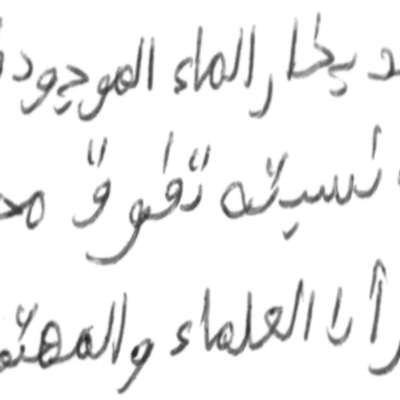 بخار الماء الموجود
نسبته تفوق
أن العلماء والمهتم